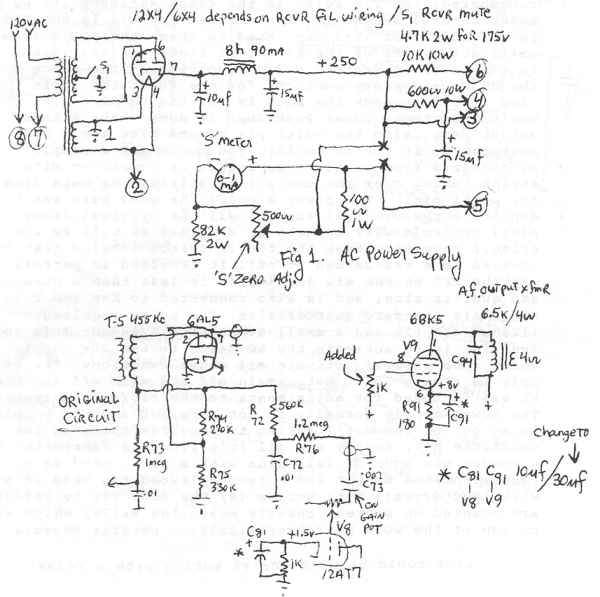 12X4/6X4 depends on RCVR FiL wiring / S1 RCVR mute
120VAC
4.7K 2W for 175V
8h 90ma
10K 10W
+250
S1
1
6
7
3
4
10µf
15µf
600ω 10W
6
4
3
15µf
8
7
1
2
'S' METER
0-1 ma
5
82K 2W
500ω
100 ω 1W
'S' ZERO Adj.
Fig 1. AC Power Supply
T-5 455Kc
6AL5
2
7
ORIGINAL CIRCUIT
R73 1meg
.01
R74 220K
R75 330K
R72
560K
C72 .01
1.2meg
R76
.001
C73
ON GAIN POT
C81
+1.5v
V8
1K
12AT7
*
Af output xfmR
6.5K/4ω
6BK5
Added
1K
8
6
+8v
R91 180
C91
*
C94
4ω
Change TO
* C81 C91 10µf/30µf
V8 V9